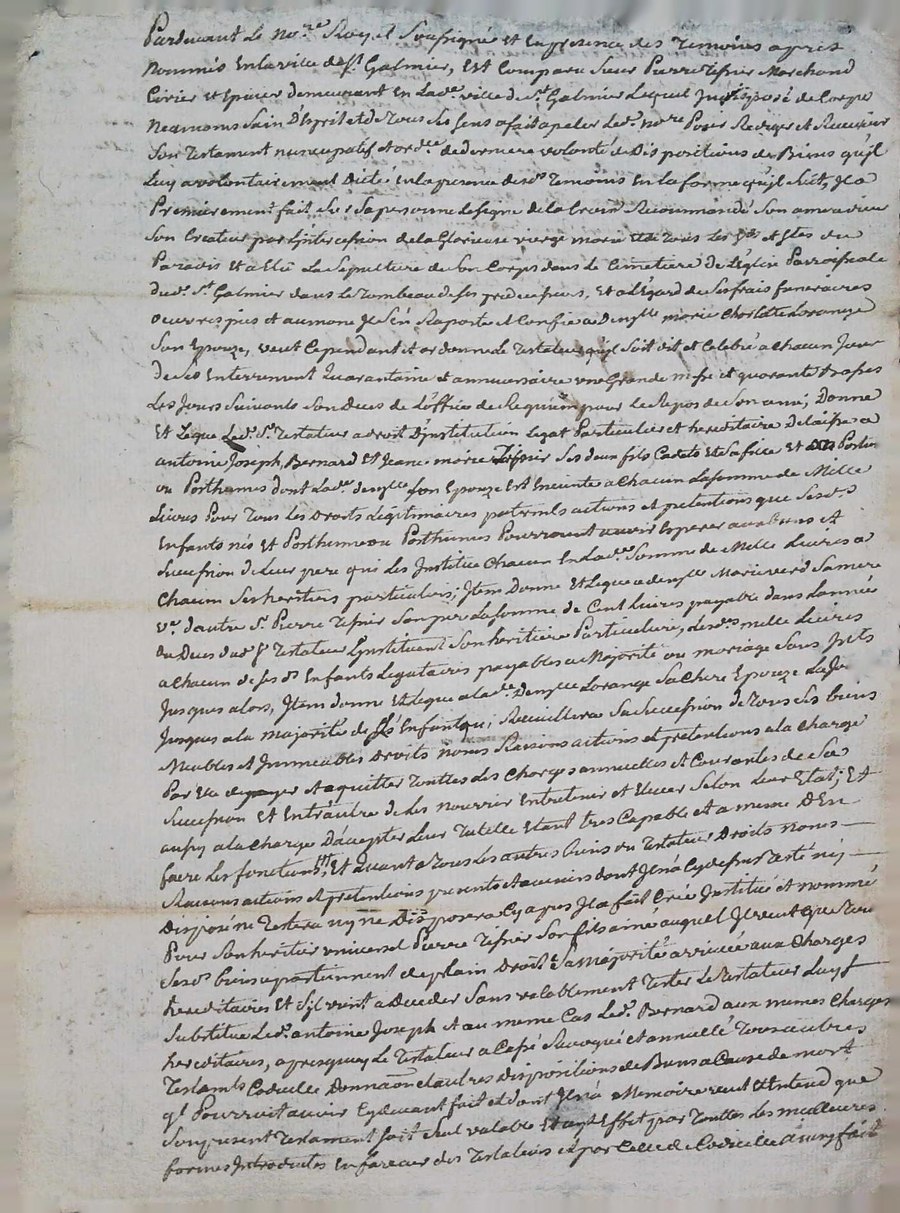 Pardevant Le No.re Royal Soussigné et En presence des Temoins apres
nommés En la ville de St Galmier, Est Comparu Sieur Pierre Tifsier Marchand
Cirier et Epicier demeurant En Lad.e ville de St Galmier Lequel Indisposé de Corps
Neamoins Sain D'Esprit et de Tous Ses Sens a fait apeler Led.t no.re Pour Rediger et Recevoir
Son Testament nuncupatif et ord.ce de derniere volonté & Dispositions de Biens qu'jl
Luy a volontairement Dicté En la presence desd.s Temoins En la forme qu'jl Suit, Jl a
Premierement fait Sur Sa personne Le signe de la Croix Recommandé Son ame a dieu
Son Createur par L'jntercession de la Glorieuse vierge marie et de Tous Les Sts et Stes du
Paradis et a Elû La Sepulture de Son Corps dans Le Cimetiere De L'Eglise Parroissiale
dud.t St Galmier dans Le Tombeau de Ses predecesseurs, Et a L'Egard de Ses frais funeraires
oeuvres pies et aumone Jl S'En Raporte et Confie a Demlle marie Charlotte Lorange
Son Epouze, veut Cependant et ordonne Le Testateur qu'jl Soit dit et Celebré a Chacun Jour
de Ses Enterrement Quarantaine et anniversaire une Grande messe et quarante basses
Les Jours Suivants Son Deces de L'office de Requiem pour Le Repos de Son ame; Donne
Et Legue Led. Sr Testateur a droit D'jnstitution Legat Particulier et hereditaire Delaisse a
antoine Joseph, Bernard Et Jeane marie Tifsier Ses deux fils Cadets Et Sa fille Et au Postume
ou Posthumes dont Lad.e demlle Son Epouze Est Enceinte a Chacun La Somme de Mille
Livres Pour Tous Les Droits Légitimaires paternels actions et pretentions que Sesd.s
Enfants nés Et Posthume ou Posthumes Pourroient avoir Esperer aux biens et
Succession de Leur pere qui Les Jnstitue Chacun En Lad.e Somme de Mille Livres a
Chacun Ses heritiers particuliers; Jtem Donne Et Legue a demlle Marie verd Sa mere
v.e d'autre Sr Pierre Tifsier Son pere La Somme de Cent Livres payable dans L'année
du Deces dud. Sr Testateur L'jnstituant Son heritiere Particuliere, Lesd.s mille Livres
a Chacun de Ses ds Enfants Legataires payables a Majorité ou mariage Sans Jnts
Jusques alors, Jtem donne Et Legue a lad.e Demlle Lorange Sa Chere Epouze La Jce
Jusques a la majorité de Ses Enfants qui Recuillera Sa Succession de Tous Ses biens
Meubles et Jmmeubles Droits noms Raisons actions et pretentions a la Charge
Par Elle de payer et aquitter Touttes Les Charges annuelles et Courantes de Sa
Succession Et Entr'autre de Les nourrir Entretenir et Elever Selon Leur Etat; Et
aussy a la Charge D'accepter Leur Tutelle Etant tres Capable et a meme D'En
faire Les fonctions, Et Quant a Tous Les autres biens du Testateur Droits noms
Raisons actions et pretentions presents et a venir dont Jl n'a Cy dessus Testé ny
Disposé ne Testera ny ne Disposera Cy apres Jl a fait Créé Jnstitué et nommé
Pour Son heritier universel Pierre Tifsier Son fils ainé auquel Jl veut que Tous
Sesd.s biens apartiennent de plain Droit Sa majorité arrivée aux Charges
hereditaires Et S'jl vient a Deceder Sans valablement Tester Le Testateur Luy
Substitue Led.t antoine Joseph et au meme Cas Led.t Bernard aux memes Charges
hereditaires, apres quoy Le Testateur a Cassé Revoqué et annullé Tous autres
Testamts Codicille Donnaõn et autres Dispositions de Biens a Cause de mort
ql Pourroit avoir Cy devant fait et dont Jl n'a Memoire veut Et Entend que
Son present Testament Soit Seul valable Et ayt Effet par Touttes Les meilleures
formes Jntroduites En faveur des Testateurs et par Celle de Codicille a ainsy fait